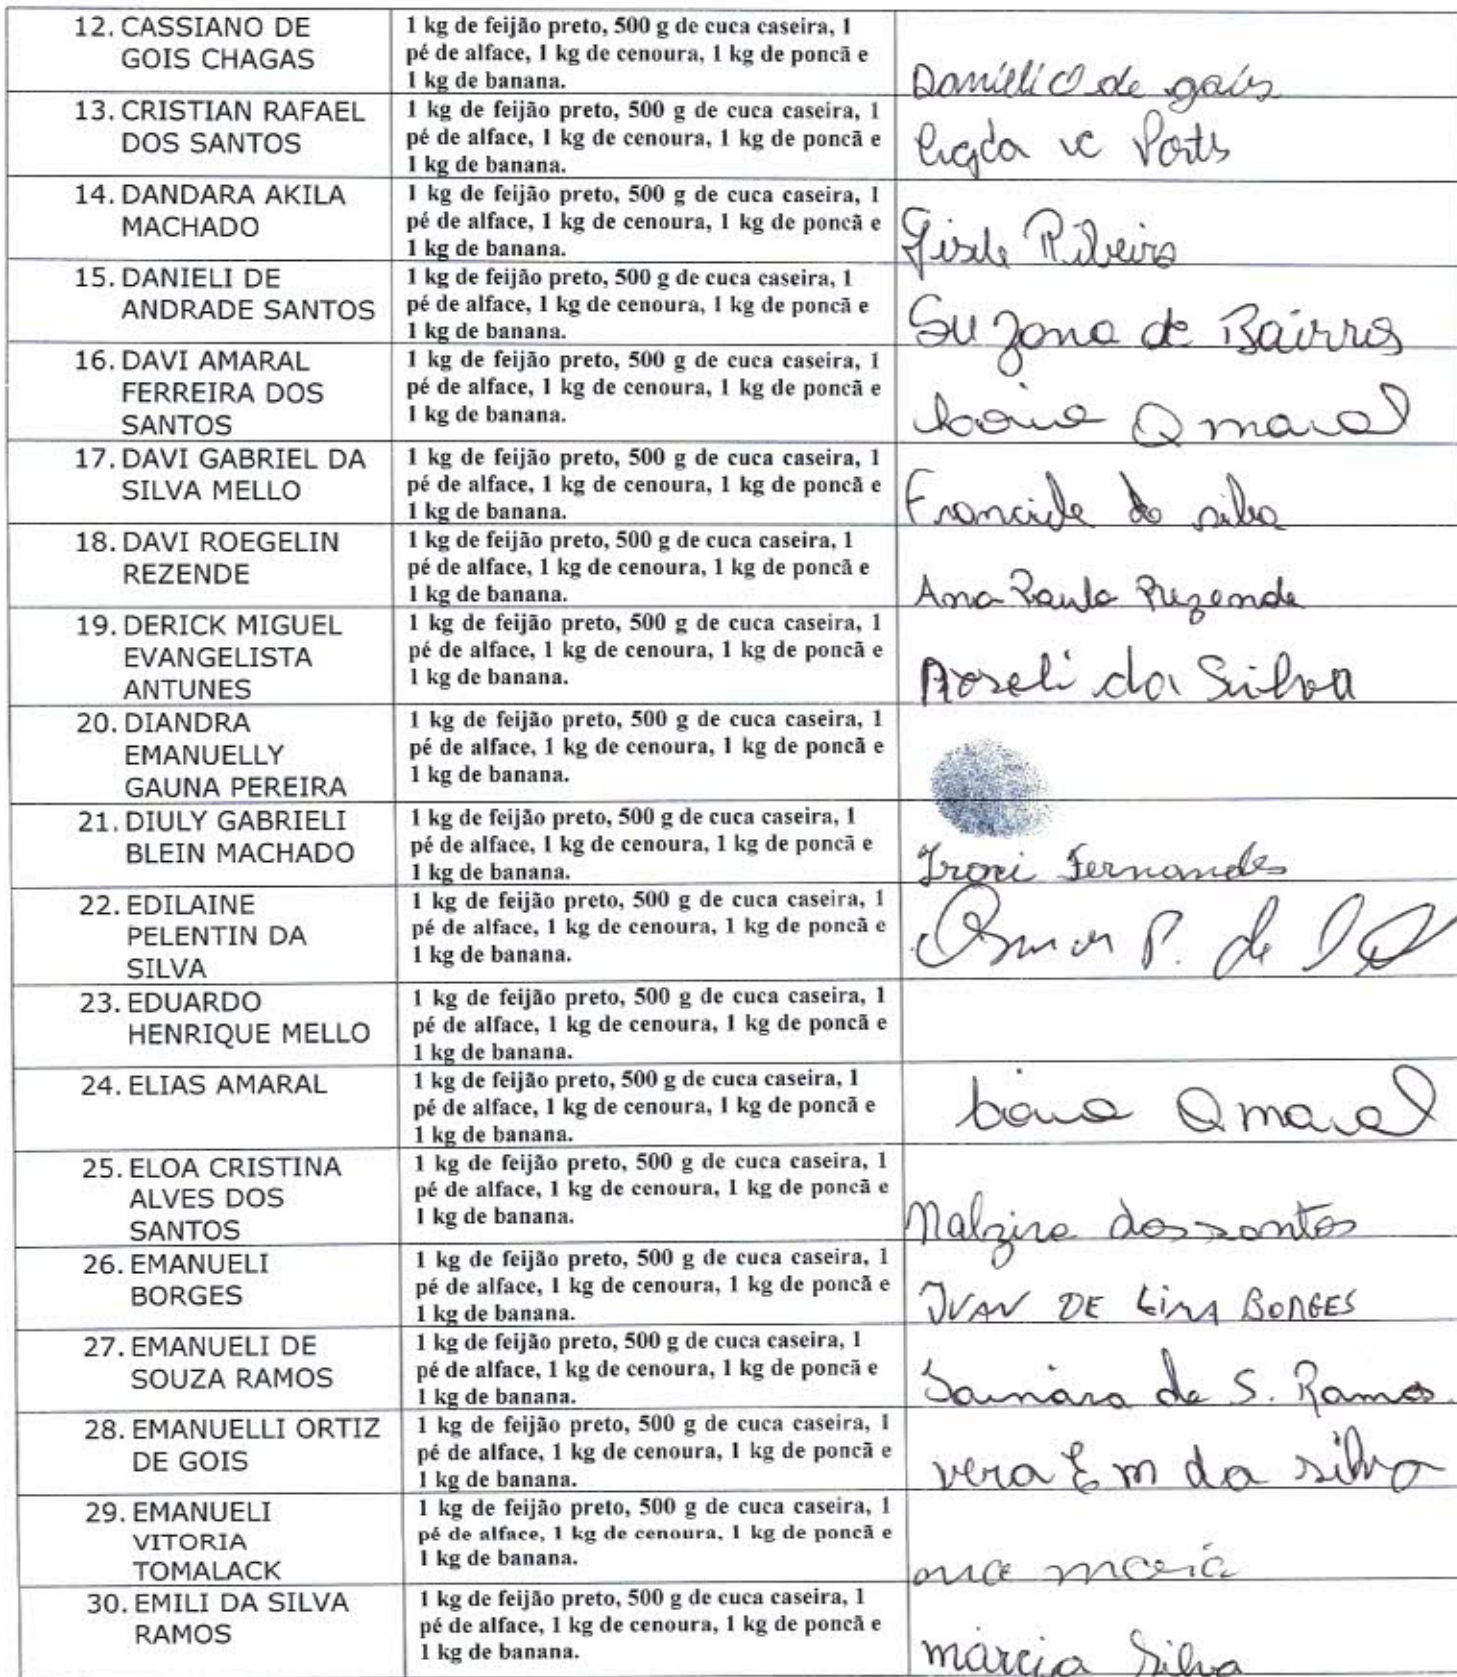 12. CASSIANO DE
GOIS CHAGAS
1 kg de feijão preto, 500 g de cuca caseira, 1
pé de alface, 1 kg de cenoura, 1 kg de poncã e
1 kg de banana.
de gois
13. CRISTIAN RAFAEL
DOS SANTOS
1 kg de feijão preto, 500 g de cuca caseira, 1
pé de alface, 1 kg de cenoura, 1 kg de poncã e
1 kg de banana.
14. DANDARA AKILA
MACHADO
1 kg de feijão preto, 500 g de cuca caseira, 1
pé de alface, 1 kg de cenoura, 1 kg de poncã e
1 kg de banana.
Gisele Ribeiro
15. DANIELI DE
ANDRADE SANTOS
1 kg de feijão preto, 500 g de cuca caseira, 1
pé de alface, 1 kg de cenoura, 1 kg de poncã e
1 kg de banana.
Suzana de Bairros
16. DAVI AMARAL
FERREIRA DOS
SANTOS
1 kg de feijão preto, 500 g de cuca caseira, 1
pé de alface, 1 kg de cenoura, 1 kg de poncã e
1 kg de banana.
Amaral
17. DAVI GABRIEL DA
SILVA MELLO
1 kg de feijão preto, 500 g de cuca caseira, 1
pé de alface, 1 kg de cenoura, 1 kg de poncã e
1 kg de banana.
da silva
18. DAVI ROEGELIN
REZENDE
1 kg de feijão preto, 500 g de cuca caseira, 1
pé de alface, 1 kg de cenoura, 1 kg de poncã e
1 kg de banana.
Ana Paula Rezende
19. DERICK MIGUEL
EVANGELISTA
ANTUNES
1 kg de feijão preto, 500 g de cuca caseira, 1
pé de alface, 1 kg de cenoura, 1 kg de poncã e
1 kg de banana.
Roseli da Silva
20. DIANDRA
EMANUELLY
GAUNA PEREIRA
1 kg de feijão preto, 500 g de cuca caseira, 1
pé de alface, 1 kg de cenoura, 1 kg de poncã e
1 kg de banana.
21. DIULY GABRIELI
BLEIN MACHADO
1 kg de feijão preto, 500 g de cuca caseira, 1
pé de alface, 1 kg de cenoura, 1 kg de poncã e
1 kg de banana.
Ironi Fernandes
22. EDILAINE
PELENTIN DA
SILVA
1 kg de feijão preto, 500 g de cuca caseira, 1
pé de alface, 1 kg de cenoura, 1 kg de poncã e
1 kg de banana.
Osmar P. da
23. EDUARDO
HENRIQUE MELLO
1 kg de feijão preto, 500 g de cuca caseira, 1
pé de alface, 1 kg de cenoura, 1 kg de poncã e
1 kg de banana.
24. ELIAS AMARAL
1 kg de feijão preto, 500 g de cuca caseira, 1
pé de alface, 1 kg de cenoura, 1 kg de poncã e
1 kg de banana.
Amaral
25. ELOA CRISTINA
ALVES DOS
SANTOS
1 kg de feijão preto, 500 g de cuca caseira, 1
pé de alface, 1 kg de cenoura, 1 kg de poncã e
1 kg de banana.
Nalzira dos santos
26. EMANUELI
BORGES
1 kg de feijão preto, 500 g de cuca caseira, 1
pé de alface, 1 kg de cenoura, 1 kg de poncã e
1 kg de banana.
IVAN DE LIMA BORGES
27. EMANUELI DE
SOUZA RAMOS
1 kg de feijão preto, 500 g de cuca caseira, 1
pé de alface, 1 kg de cenoura, 1 kg de poncã e
1 kg de banana.
Samara de S. Ramos.
28. EMANUELLI ORTIZ
DE GOIS
1 kg de feijão preto, 500 g de cuca caseira, 1
pé de alface, 1 kg de cenoura, 1 kg de poncã e
1 kg de banana.
vera E m da silva
29. EMANUELI
VITORIA
TOMALACK
1 kg de feijão preto, 500 g de cuca caseira, 1
pé de alface, 1 kg de cenoura, 1 kg de poncã e
1 kg de banana.
ana maria
30. EMILI DA SILVA
RAMOS
1 kg de feijão preto, 500 g de cuca caseira, 1
pé de alface, 1 kg de cenoura, 1 kg de poncã e
1 kg de banana.
márcia Silva